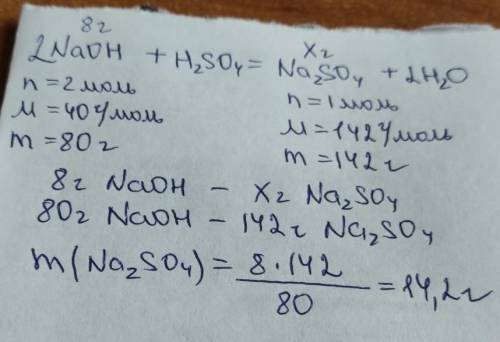 8г                    Xг
2NaOH + H₂SO₄ = Na₂SO₄ + 2H₂O
n = 2 моль          n = 1 моль
M = 40 г/моль      M = 142 г/моль
m = 80 г             m = 142 г
8г NaOH – Xг Na₂SO₄
80г NaOH – 142г Na₂SO₄
m(Na₂SO₄) = 8·142/80 = 14,2г